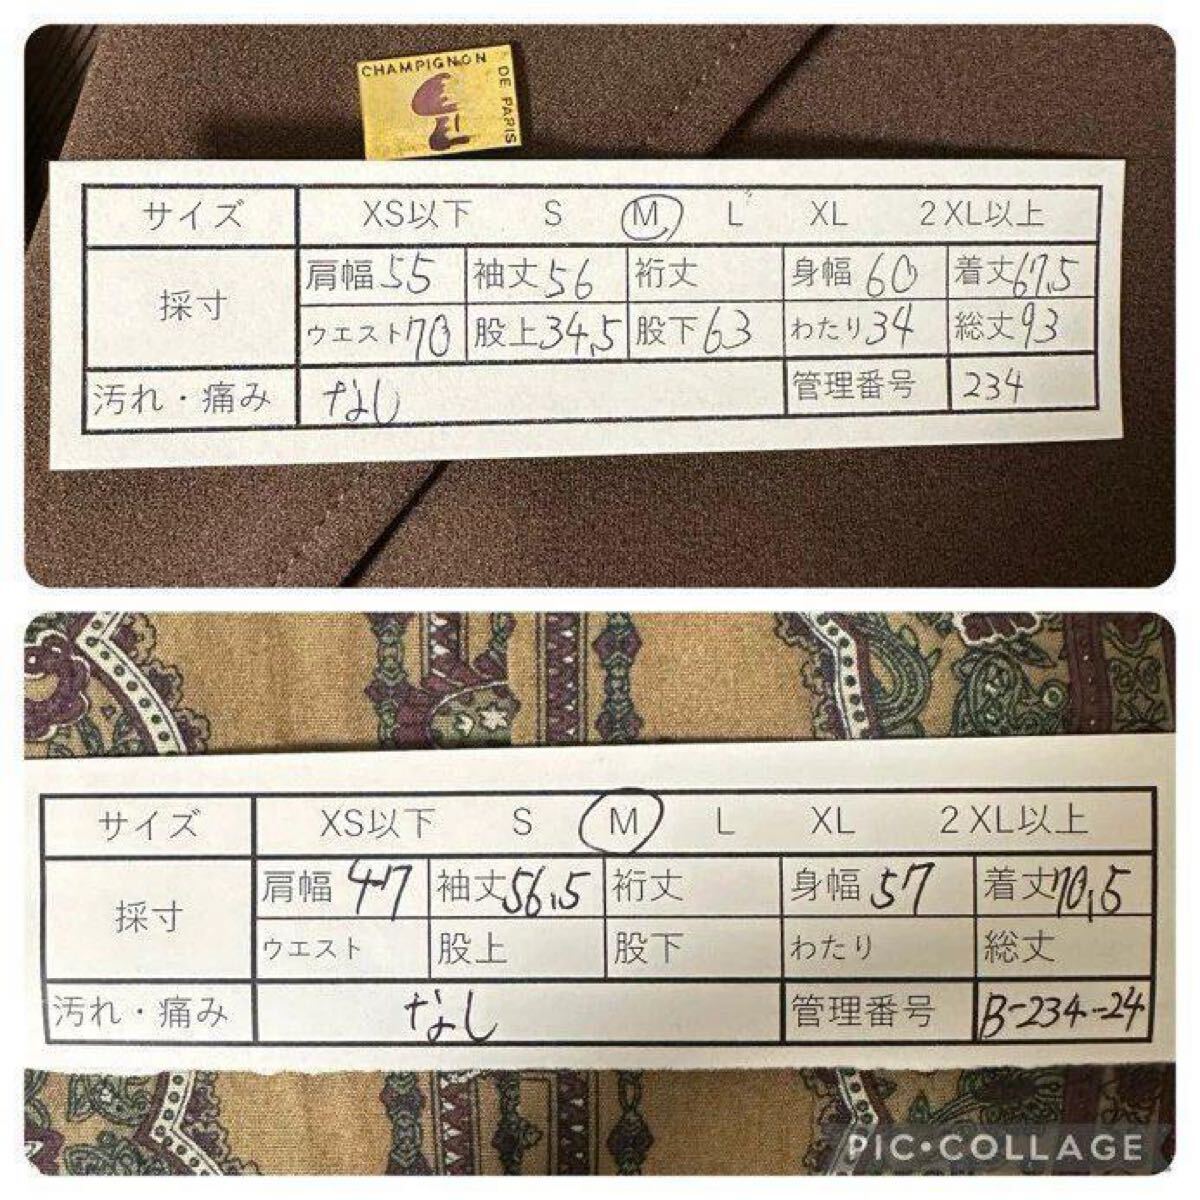 CHAMPIGNON
DE PARIS
サイズ XS以下 S M L XL 2XL以上
採寸
肩幅 55 袖丈 56 裄丈 身幅 60 着丈 67.5
ウエスト 70 股上 34.5 股下 63 わたり 34 総丈 93
汚れ・痛み なし 管理番号 234
サイズ XS以下 S M L XL 2XL以上
採寸
肩幅 47 袖丈 56.5 裄丈 身幅 57 着丈 70.5
ウエスト 股上 股下 わたり 総丈
汚れ・痛み なし 管理番号 B-234-24
PIC•COLLAGE